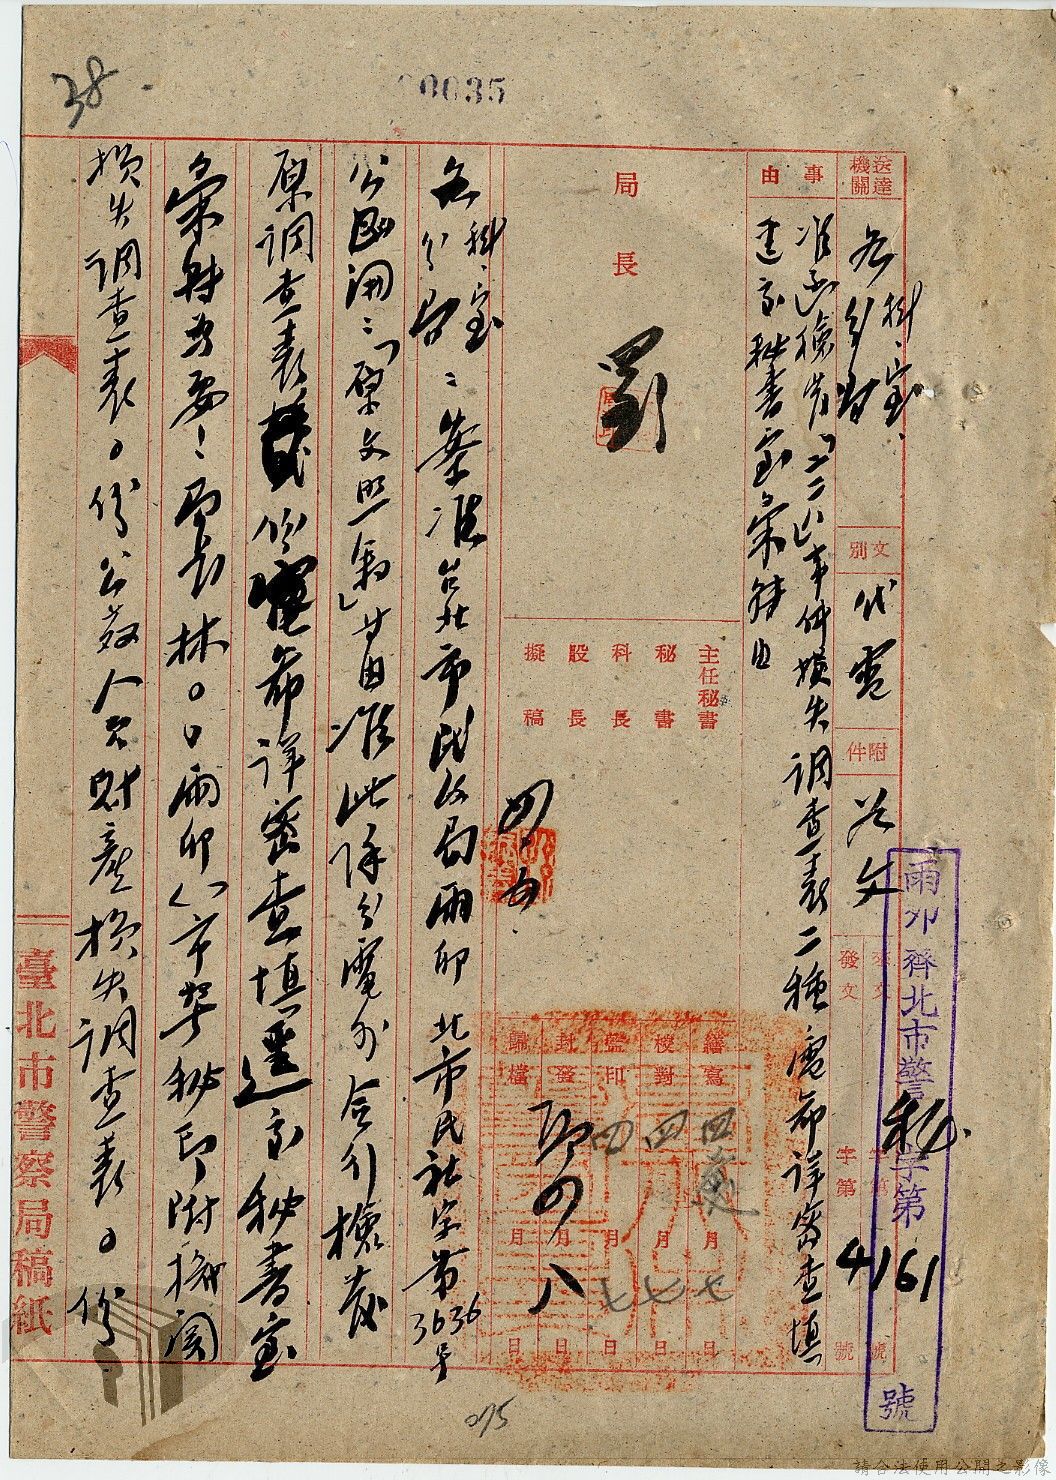 38
00035
送達機關
各科、室、
各分局
文別
代電
附件
如文
發文
字第
號
雨卯齊北市警秘字第4161號
事由
准函檢發「二二八」事件損失調查表二種電希詳密查填
送交秘書室彙辦由
局長
主任秘書
秘書
科長
股長
擬稿
四、五、
繕寫
校對
監印
封發
歸檔
四月七日
四月七日
四月七日
卯四八
月
日
各科、室
各分局:案准台北市政府民政局雨卯 北市民社字第3636号
公函開:「原文照錄」等由准此除分電外合行檢發
原調查表 份電希詳密查填逕交秘書室
彙辦為要、局長林〇〇雨卯()市警秘印附機關
損失調查表〇份公教人員財產損失調查表〇份
臺北市警察局稿紙
075
請合法使用公開之影像